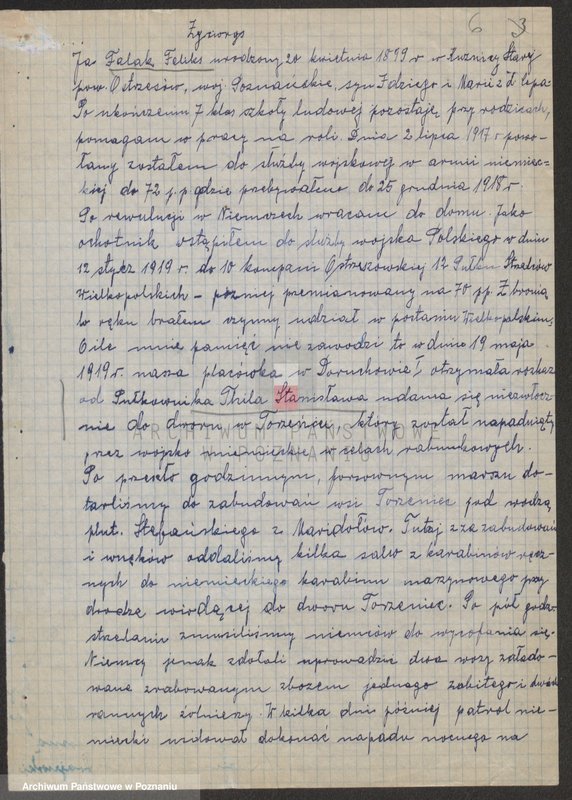 Życiorys
6 3
Ja Falak Feliks urodzony 20 kwietnia 1899 r w Kuźnicy Starej
pow. Ostrzeszów, woj. Poznańskie, syn Idziego i Marii z d. Lipa
Po ukończeniu 7 klas szkoły ludowej pozostaję przy rodzicach,
pomagam w pracy na roli. Dnia 2 lipca 1917 r powo-
łany zostałem do służby wojskowej w armii niemiec-
kiej do 72 p.p gdzie przebywałem do 25 grudnia 1918 r
Po rewulucji w Niemczech wracam do domu. Jako
ochotnik wstąpiłem do służby wojska Polskiego w dniu
12 stycz 1919 r. do 10 kompanii Ostrzeszowskiej 12 Pułku Strzelców
Wielkopolskich - później przemianowany na 70 pp. Z bronią
w ręku brałem czynny udział w postaniu Wielkopolskim,
O ile mnie pamięć nie zawodzi to w dniu 19 maja
1919 r. nasza placówka w Doruchowie otrzymała rozkaz
od Pułkownika Thila Stanisława udania się niezwłocz
nie do dworu w Torzeńcu, który został napadnięty
przez wojsko niemieckie w celach rabunkowych.
Po przeszło godzinnym, forsownym marszu do-
tarliśmy do zabudowań wsi Torzeniec pod wodzą
plut. Stefańskiego z Marydołów. Tutaj z za zabudowań
i wnęków oddaliśmy kilka salw z karabinów ręcz-
nych do niemieckiego karabinu maszynowego przy
drodze wiodącej do dworu Torzeniec. Po pół godz.
strzelaniu zmusiliśmy niemców do wycofania się.
Niemcy jenak zdołali uprowadzić dwa wozy załado-
wane zrabowanym zbożem jednego zabitego i dwóch
rannych żołnierzy. W kilka dni później patrol nie-
miecki usiłował dokonać napadu nocnego na
ARCHIWUM PAŃSTWOWE
W POZNANIU
Archiwum Państwowe w Poznaniu